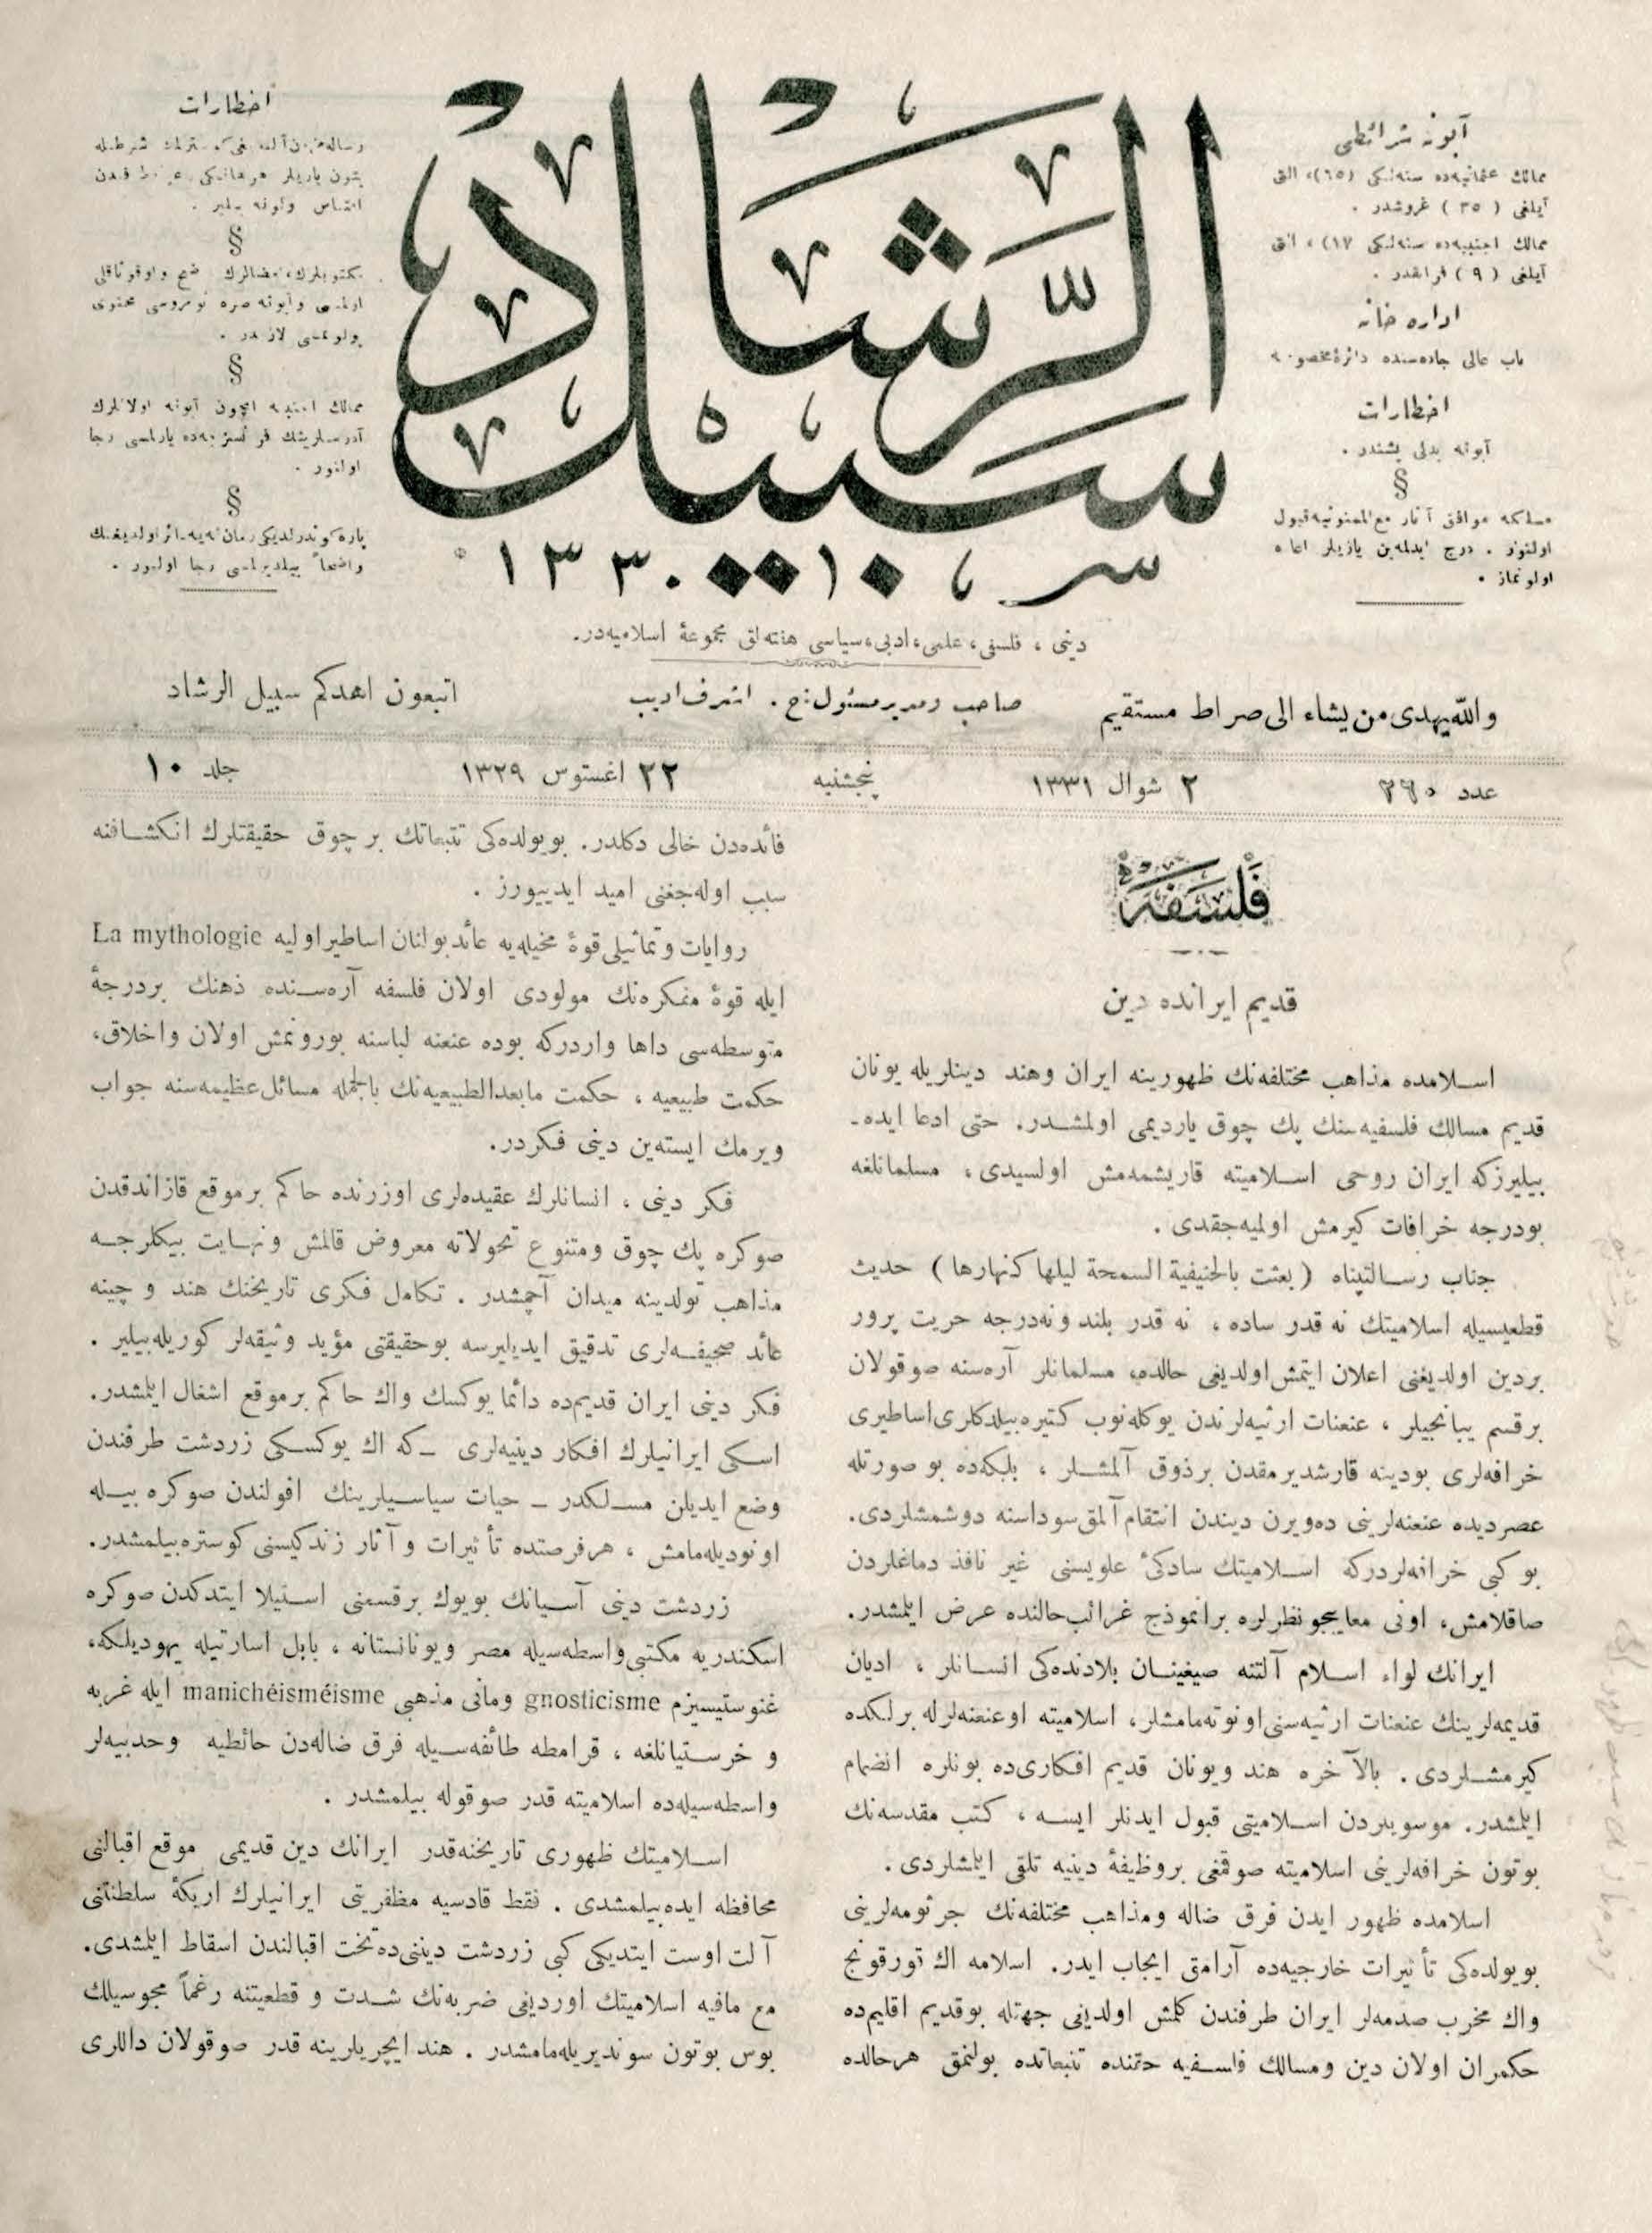 آبونه شرائطى
ممالك عثمانيه‌ده سنه‌لكى (٦٥)، التى
آيلغى ( ٣٥ ) غروشدر .
ممالك اجنبيه‌ده سنه‌لكى (١٧)، التى
آيلغى ( ٩ ) فرانقدر .
اداره خانه
باب عالى جاده‌سنده دائرهٔ مخصوصه
اخطارات
آبونه بدلى پشندر .
§
مسلكه موافق آثار مع‌الممنونيه قبول
اولنور . درج ايدلمه‌ين يازيلر اعاده
اولونماز .
سبيل الرشاد
سر ١٣٣٠
اخطارات
§
§
ممالك اجنبيه ايچون آبونه اولانلرك
آدرسلرينك فرانسزجه‌ده يازلمسى رجا
اولنور .
§
پاره كوندرلديكى زمان نه‌يه دائر اولديغنك
واضحاً بيلديرلمسى رجا اولنور .
دينى ، فلسفى، علمى، ادبى، سياسى هفته‌لق مجموعهٔ اسلاميه‌در.
والله يهدى من يشاء الى صراط مستقيم
صاحب ومدير مسئول: ح . اشرف اديب
اتبعون اهدكم سبيل الرشاد
عدد ٢٦٠
٢ شوال ١٣٣١
پنجشنبه
٢٢ اغستوس ١٣٢٩
جلد ١٠
فلسفه
قديم ايرانده دين
اسلامده مذاهب مختلفه‌نك ظهورينه ايران وهند دينلريله يونان
قديم مسالك فلسفيه‌سنك پك چوق يارديمى اولمشدر. حتى ادعا ايده-
بيليرزكه ايران روحى اسلاميته قاريشمه‌مش اولسيدى، مسلمانلغه
بودرجه خرافات كيرمش اولميه‌جقدى .
جناب رسالتپناه ( بعثت بالحنيفية السمحة ليلها كنهارها ) حديث
قطعيسيله اسلاميتك نه قدر ساده ، نه قدر بلند ونه‌درجه حريت پرور
بردين اولديغنى اعلان ايتمش اولديغى حالده، مسلمانلر آره‌سنه صوقولان
برقسم يبانجيلر ، عنعنات ارثيه‌لرندن يوكله‌نوب كتيره‌بيلدكلرى اساطيرى
خرافه‌لرى بودينه قارشديرمقدن برذوق آلمشلر ، بلكه‌ده بو صورتله
عصرديده عنعنه‌لرينى ده‌ويرن ديندن انتقام آلمق سوداسنه دوشمشلردى.
بو كبى خرافه‌لردركه اسلاميتك سادكئ علويسنى غير نافذ دماغلردن
صاقلامش، اونى معايبجو نظرلره برانموذج غرائب حالنده عرض ايلمشدر.
ايرانك لواء اسلام آلتنه صيغينان بلادنده‌كى انسانلر ، اديان
قديمه‌لرينك عنعنات ارثيه‌سنى اونوته‌مامشلر، اسلاميته اوعنعنه‌لرله برلكده
كيرمشلردى . بالآخره هند ويونان قديم افكارى‌ده بونلره انضمام
ايلمشدر. موسويلردن اسلاميتى قبول ايدنلر ايسه ، كتب مقدسه‌نك
بوتون خرافه‌لرينى اسلاميته صوقمغى بروظيفهٔ دينيه تلقى ايلمشلردى .
اسلامده ظهور ايدن فرق ضاله ومذاهب مختلفه‌نك جرثومه‌لرينى
بويولده‌كى تأثيرات خارجيه‌ده آرامق ايجاب ايدر. اسلامه اك قورقونج
واك مخرب صدمه‌لر ايران طرفندن كلمش اولديغى جهتله بوقديم اقليم‌ده
حكمران اولان دين ومسالك فلسفيه حقنده تتبعاتده بولنمق هرحالده
فائده‌دن خالى دكلدر. بويولده‌كى تتبعاتك بر چوق حقيقتلرك انكشافنه
سبب اوله‌جغنى اميد ايدييورز .
روايات وتماثيلى قوهٔ مخيله‌يه عائد بولنان اساطير اوليه La mythologie
ايله قوهٔ متفكره‌نك مولودى اولان فلسفه آره‌سنده ذهنك بردرجهٔ
متوسطه‌سى داها واردركه بوده عنعنه لباسنه بورونمش اولان واخلاق،
حكمت طبيعيه ، حكمت مابعدالطبيعيه‌نك بالجمله مسائل عظيمه‌سنه جواب
ويرمك ايسته‌ين دينى فكردر.
فكر دينى ، انسانلرك عقيده‌لرى اوزرنده حاكم برموقع قازاندقدن
صوكره پك چوق ومتنوع تحولاته معروض قالمش ونهايت بيكلرجه
مذاهب تولدينه ميدان آچمشدر . تكامل فكرى تاريخنك هند و چينه
عائد صحيفه‌لرى تدقيق ايديليرسه بوحقيقتى مؤيد وثيقه‌لر كوريله‌بيلير .
فكر دينى ايران قديم‌ده دائما يوكسك واك حاكم برموقع اشغال ايلمشدر.
اسكى ايرانيلرك افكار دينيه‌لرى - كه اك يوكسكى زردشت طرفندن
وضع ايديلن مسلكدر - حيات سياسيلرينك افولندن صوكره بيله
اونوديله‌مامش ، هرفرصتده تأثيرات و آثار زندكيسنى كوستره‌بيلمشدر.
زردشت دينى آسيانك بويوك برقسمنى استيلا ايتدكدن صوكره
اسكندريه مكتبى واسطه‌سيله مصر ويونانستانه ، بابل اسارتيله يهوديلكه،
غنوستيسيزم gnosticisme ومانى مذهبى manichéisméisme ايله غربه
و خرستيانلغه ، قرامطه طائفه‌سيله فرق ضاله‌دن حائطيه وحدبيه‌لر
واسطه‌سيله‌ده اسلاميته قدر صوقوله بيلمشدر .
اسلاميتك ظهورى تاريخنه‌قدر ايرانك دين قديمى موقع اقبالنى
محافظه ايده‌بيلمشدى . فقط قادسيه مظفريتى ايرانيلرك اريكهٔ سلطنتنى
آلت اوست ايتديكى كبى زردشت ديننى‌ده تخت اقبالندن اسقاط ايلمشدى.
مع مافيه اسلاميتك اورديغى ضربه‌نك شدت و قطعيتنه رغماً مجوسيلك
بوس بوتون سونديريله‌مامشدر . هند ايچريلرينه قدر صوقولان داللرى